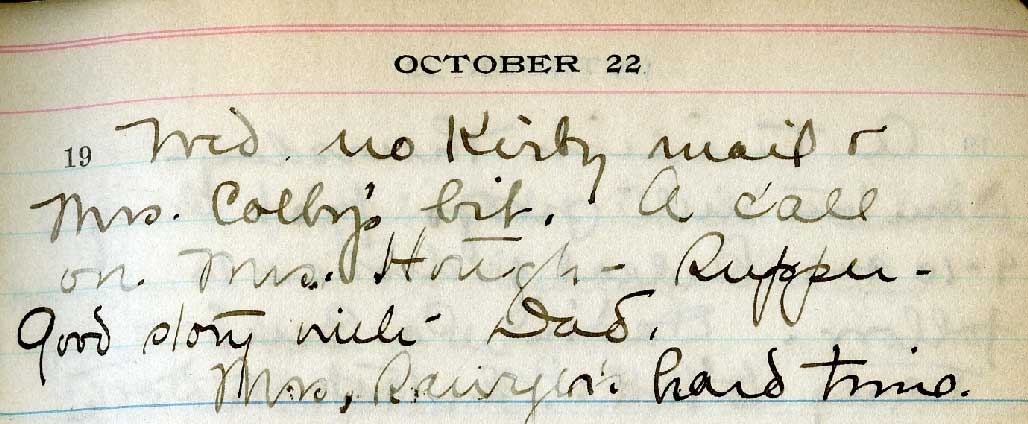 OCTOBER 22
19 Wed. no Kirby mail &
Mrs. Colby's bit. A call
on Mrs. Hough - Rupper -
Good story with Dad.
Mrs, hard time.